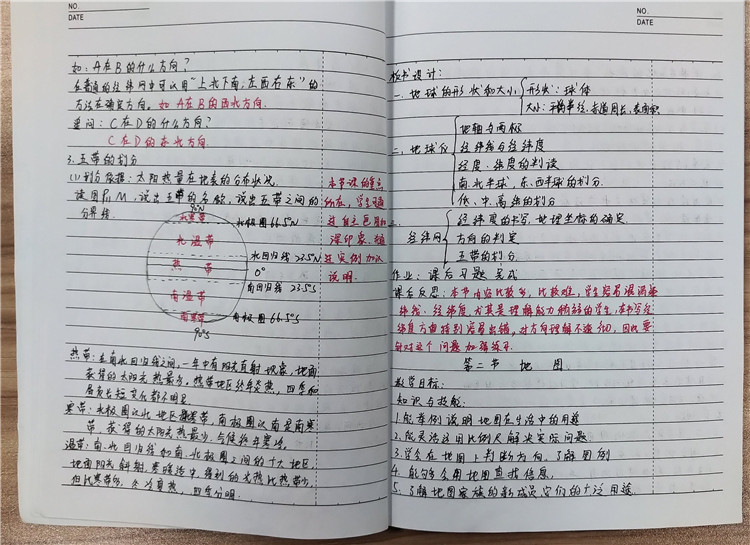 NO.
DATE
如：A在B的什么方向？
在普通的经纬网中可以用"上北下南，左西右东"的
方法在确定方向。如A在B的西北方向.
追问：C在D的什么方向？
C在D的东北方向.
3.五带的划分
(1)划分依据：太阳热量在地表的分布状况.
读图P11 M，说出五带的名称，说出五带之间的
分界线.
本节课的重点
90°N
北寒带 北极圈66.5°N
北温带
北回归线23.5°N
热 带
0°
南回归线23.5°S
南温带
南寒带 南极圈66.5°S
90°S
深印象.
说明.
热带：在南北回归线之间，一年中有阳光直射现象，地面
获得的太阳光热最多，热带地区终年炎热，四季和
昼夜长短变化都不明显
寒带：北极圈以北地区是北寒带，南极圈以南是南寒
带，获得的太阳光热最少，气候终年寒冷.
温带：南、北回归线和南、北极圈之间的广大地区，
地面阳光斜射，寒暖适中，得到的光热比热带少，
但比寒带多，冬冷夏热，四季分明.
NO.
DATE
板书设计：
一、地球的形状和大小 形状：球体
大小：平均半径，赤道周长，表面积
二、地球仪
地轴与两极
经纬线与经纬度
经度、纬度的判读
南北半球，东、西半球的划分
低、中、高纬的划分
三、经纬网
经纬度的书写，地理坐标的确定
方向的判定
五带的划分
作业：课后习题完成
课后反思：本节内容比较多，比较难，学生容易混淆
纬线、经纬度，尤其是理解能力稍弱的学生，在书写经
纬度方面特别容易出错，对方向理解不透彻，因此要
针对这个问题加强练习.
第二节 地 图
教学目标：
知识与技能：
1.能举例说明地图在生活中的用途
2.能灵活运用比例尺解决实际问题
3.学会在地图上判断方向，了解图例
4.能够学会用地图查找信息.
5.了解地图家族的新成员它们的广泛用途.